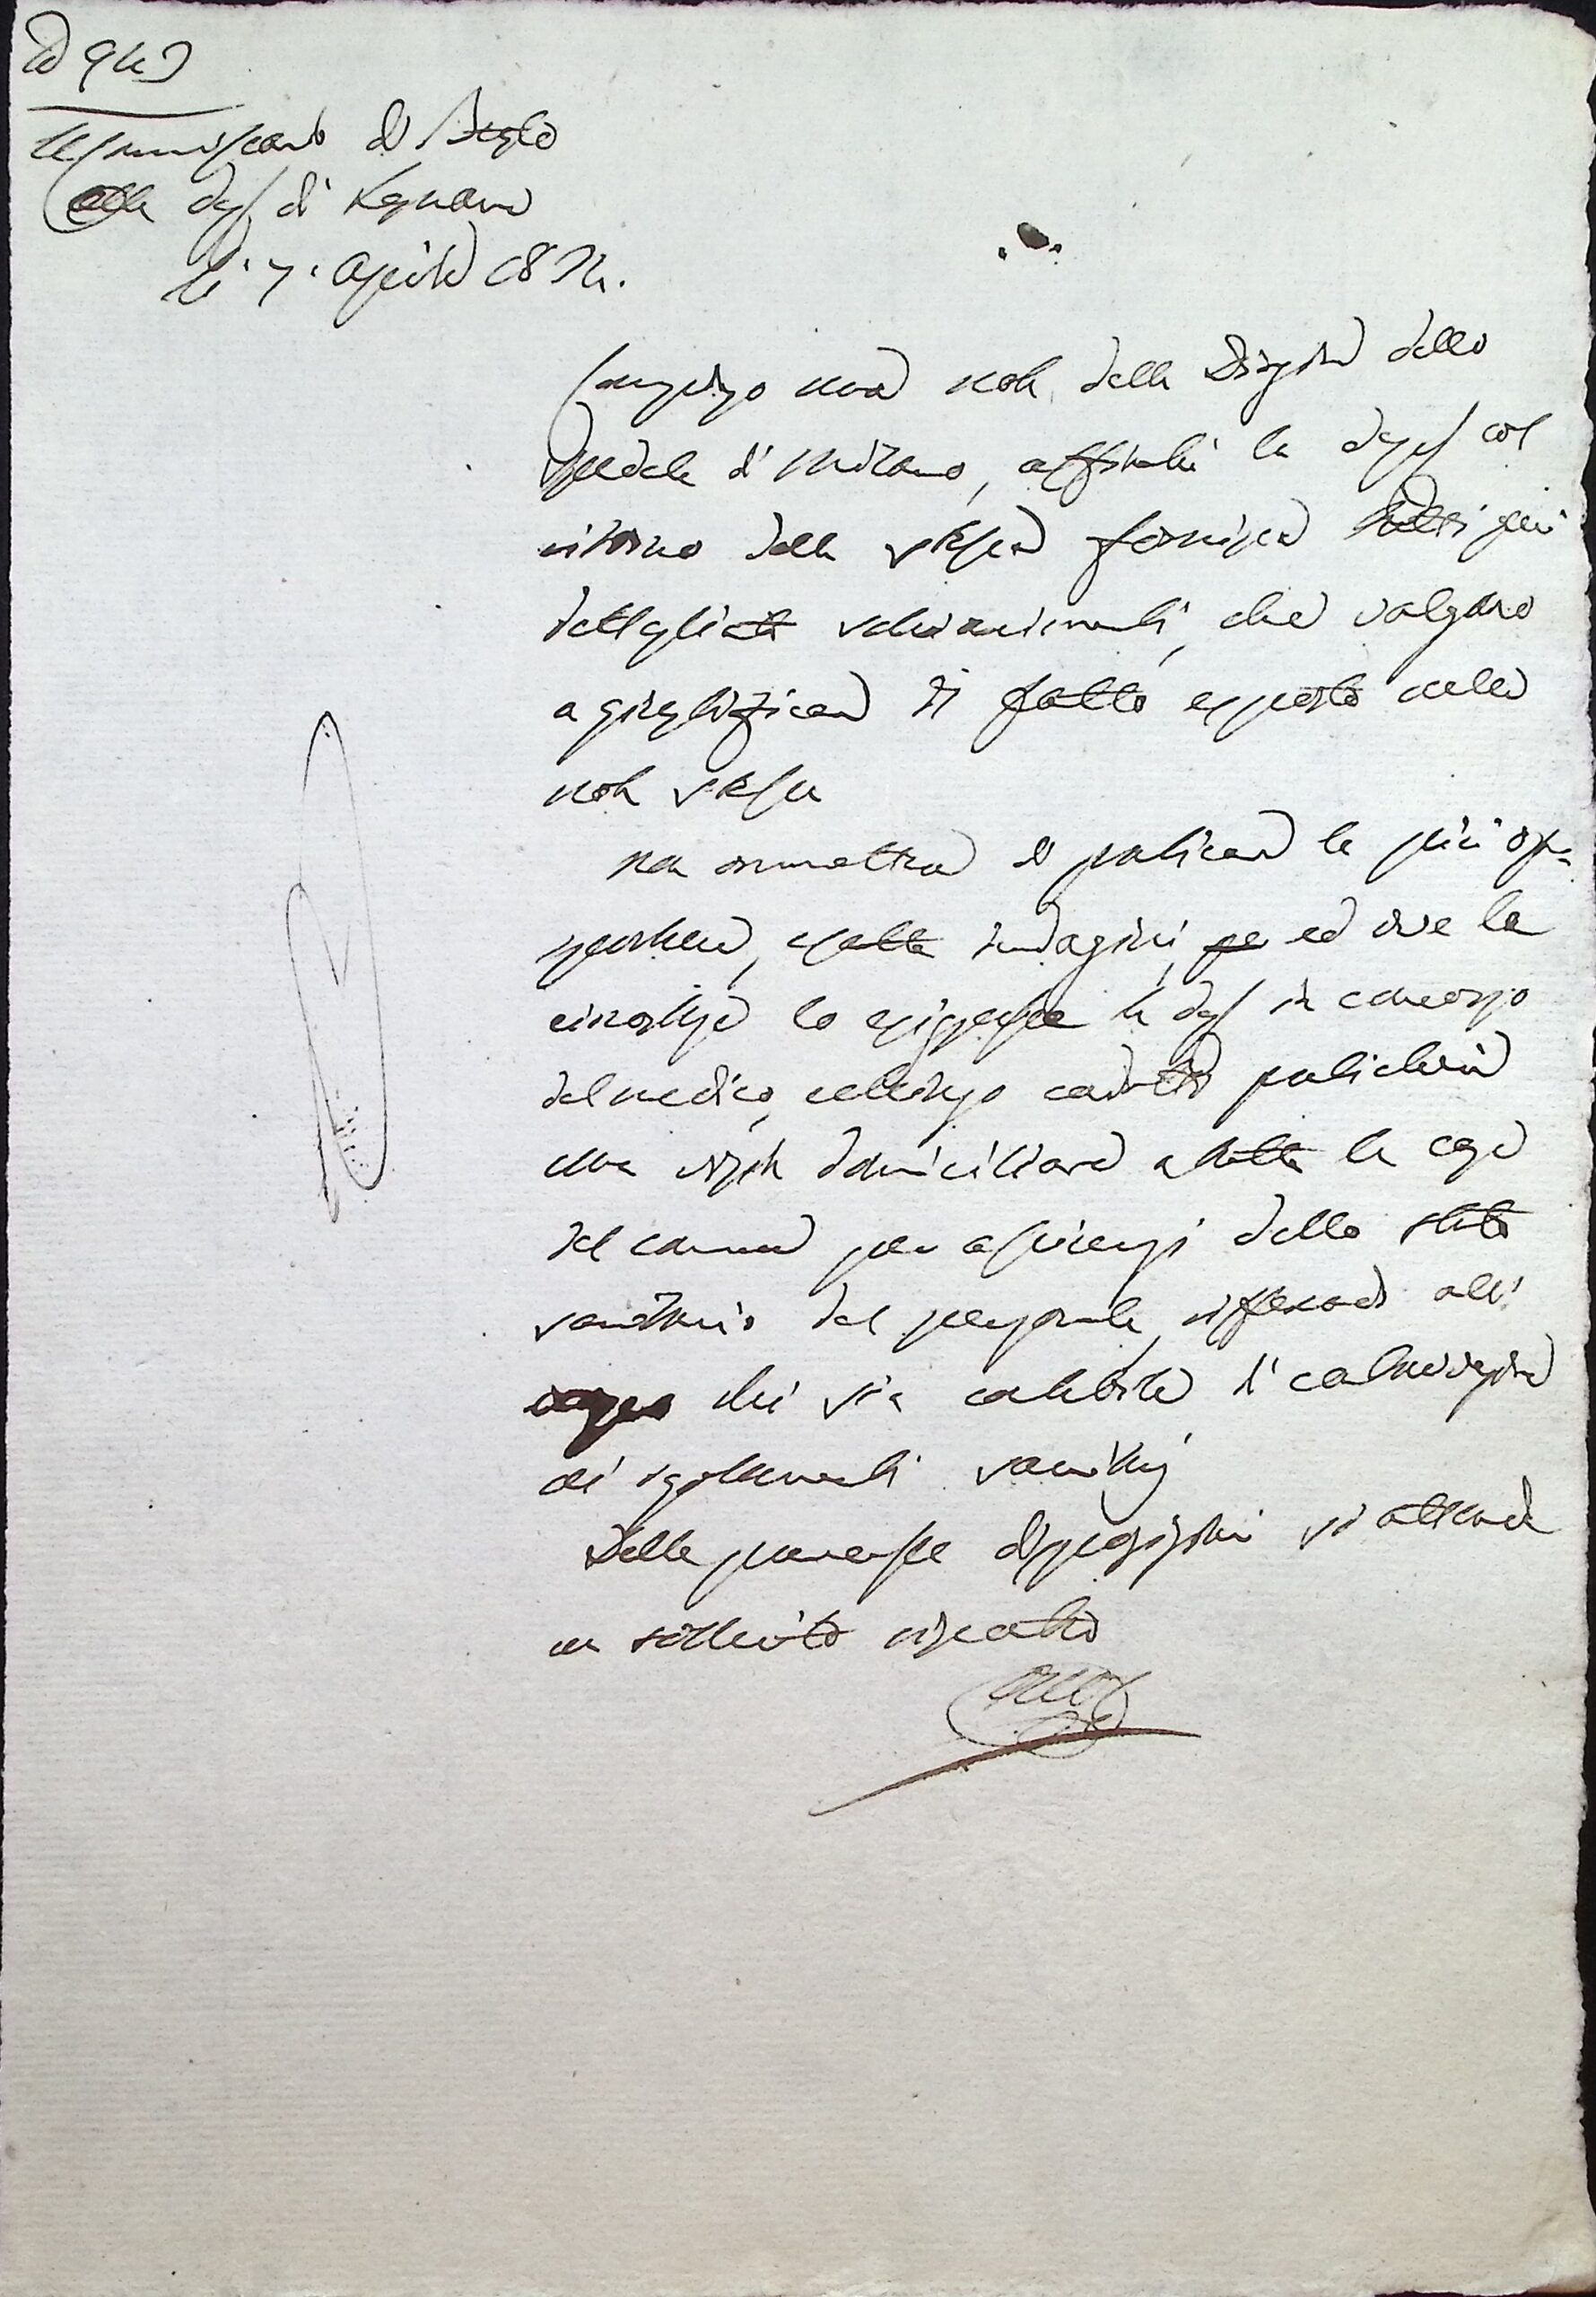 Commissario di
alla di Legnano
li 7. Aprile
una nota della Direzione dello
Spedale di Milano, affinché la col
ritorno della stessa fornisca tutti i più
dettagliati schiarimenti, che valgano
a giustificare il fatto esposto nella
nota stessa
Non ommetterà di praticare le più op-
portune, esatte indagini, ed ove le
circostanze lo esigessero la in concorso
del medico, chirurgo condotto praticherà
una visita domiciliare a tutte le case
del comune per assicurarsi dello stato
sanitario del personale, riferendo all'
chi sia colpevole di contravvenzione
ai regolamenti sanitarj
Delle premesse disposizioni si attende
un sollecito riscontro